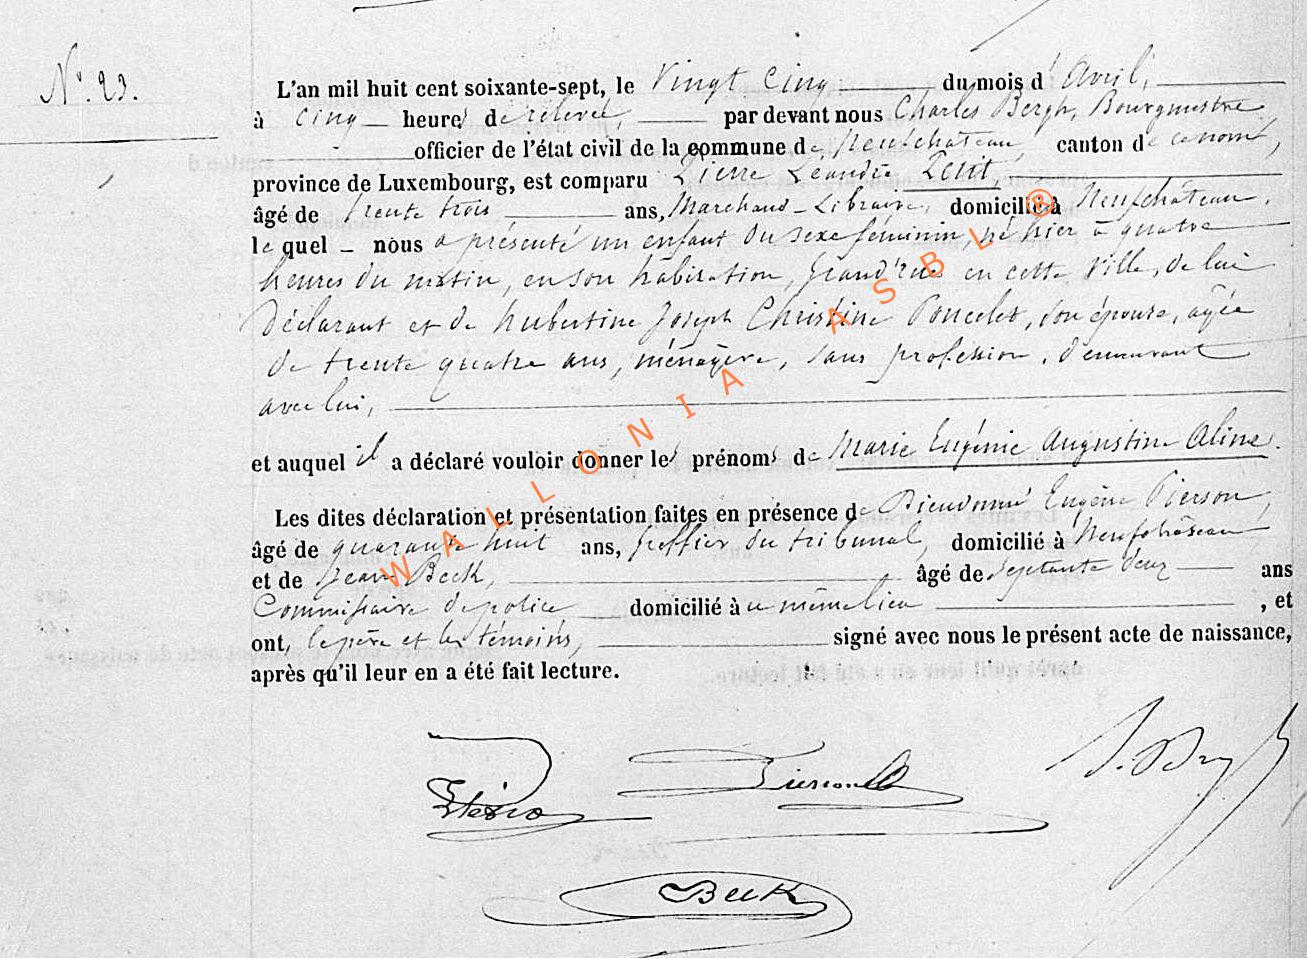 N° 23.
L'an mil huit cent soixante-sept, le Vingt Cinq du mois d'Avril,
à Cinq heures de rélevée, par devant nous Charles Bergh, Bourgmestre
officier de l'état civil de la commune de Neufchateau, canton de ce nom,
province de Luxembourg, est comparu Pierre Léandre Petit,
âgé de trente trois ans, Marchand-Libraire, domicilié à Neufchâteau,
le quel nous a présenté un enfant du sexe féminin, né hier à quatre
heures du matin, en son habitation, Grand'rue en cette Ville, de lui
Déclarant et de Hubertine Joseph Christine Poncelet, son épouse, agée
de trente quatre ans, ménagère, sans profession, demeurant
avec lui,
et auquel il a déclaré vouloir donner les prénoms de Marie Eugénie Augustine Aline.
Les dites déclaration et présentation faites en présence de Dieudonné Eugène Pierson,
âgé de quarante huit ans, greffier du tribunal, domicilié à Neufchâteau
et de Jean Beck, âgé de septante deux ans
Commissaire de police domicilié à ce même lieu , et
ont, le père et les témoins, signé avec nous le présent acte de naissance,
après qu'il leur en a été fait lecture.
Pierson
Beck
WALLONIA ASBL ®